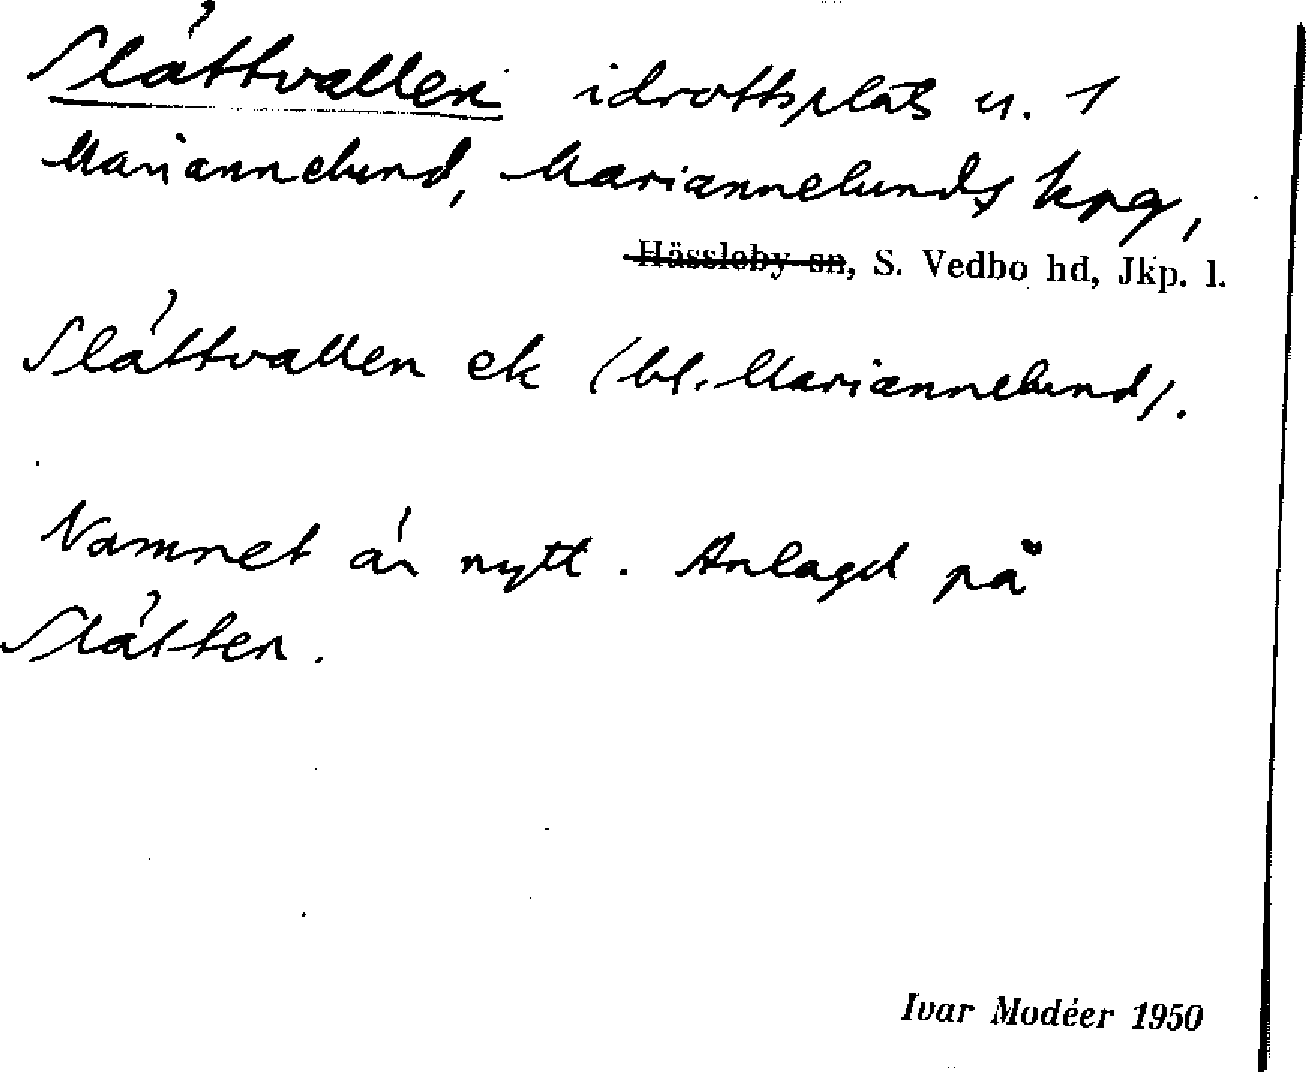 Slättvallen idrottsplats u. 1
Mariannelund, Mariannelunds kpg,
Hässleby sn, S. Vedbo hd, Jkp. l.
Slättvallen ek (bl. Mariannelund).
Namnet är nytt. Anlagd på
Slätten.
Ivar Modéer 1950